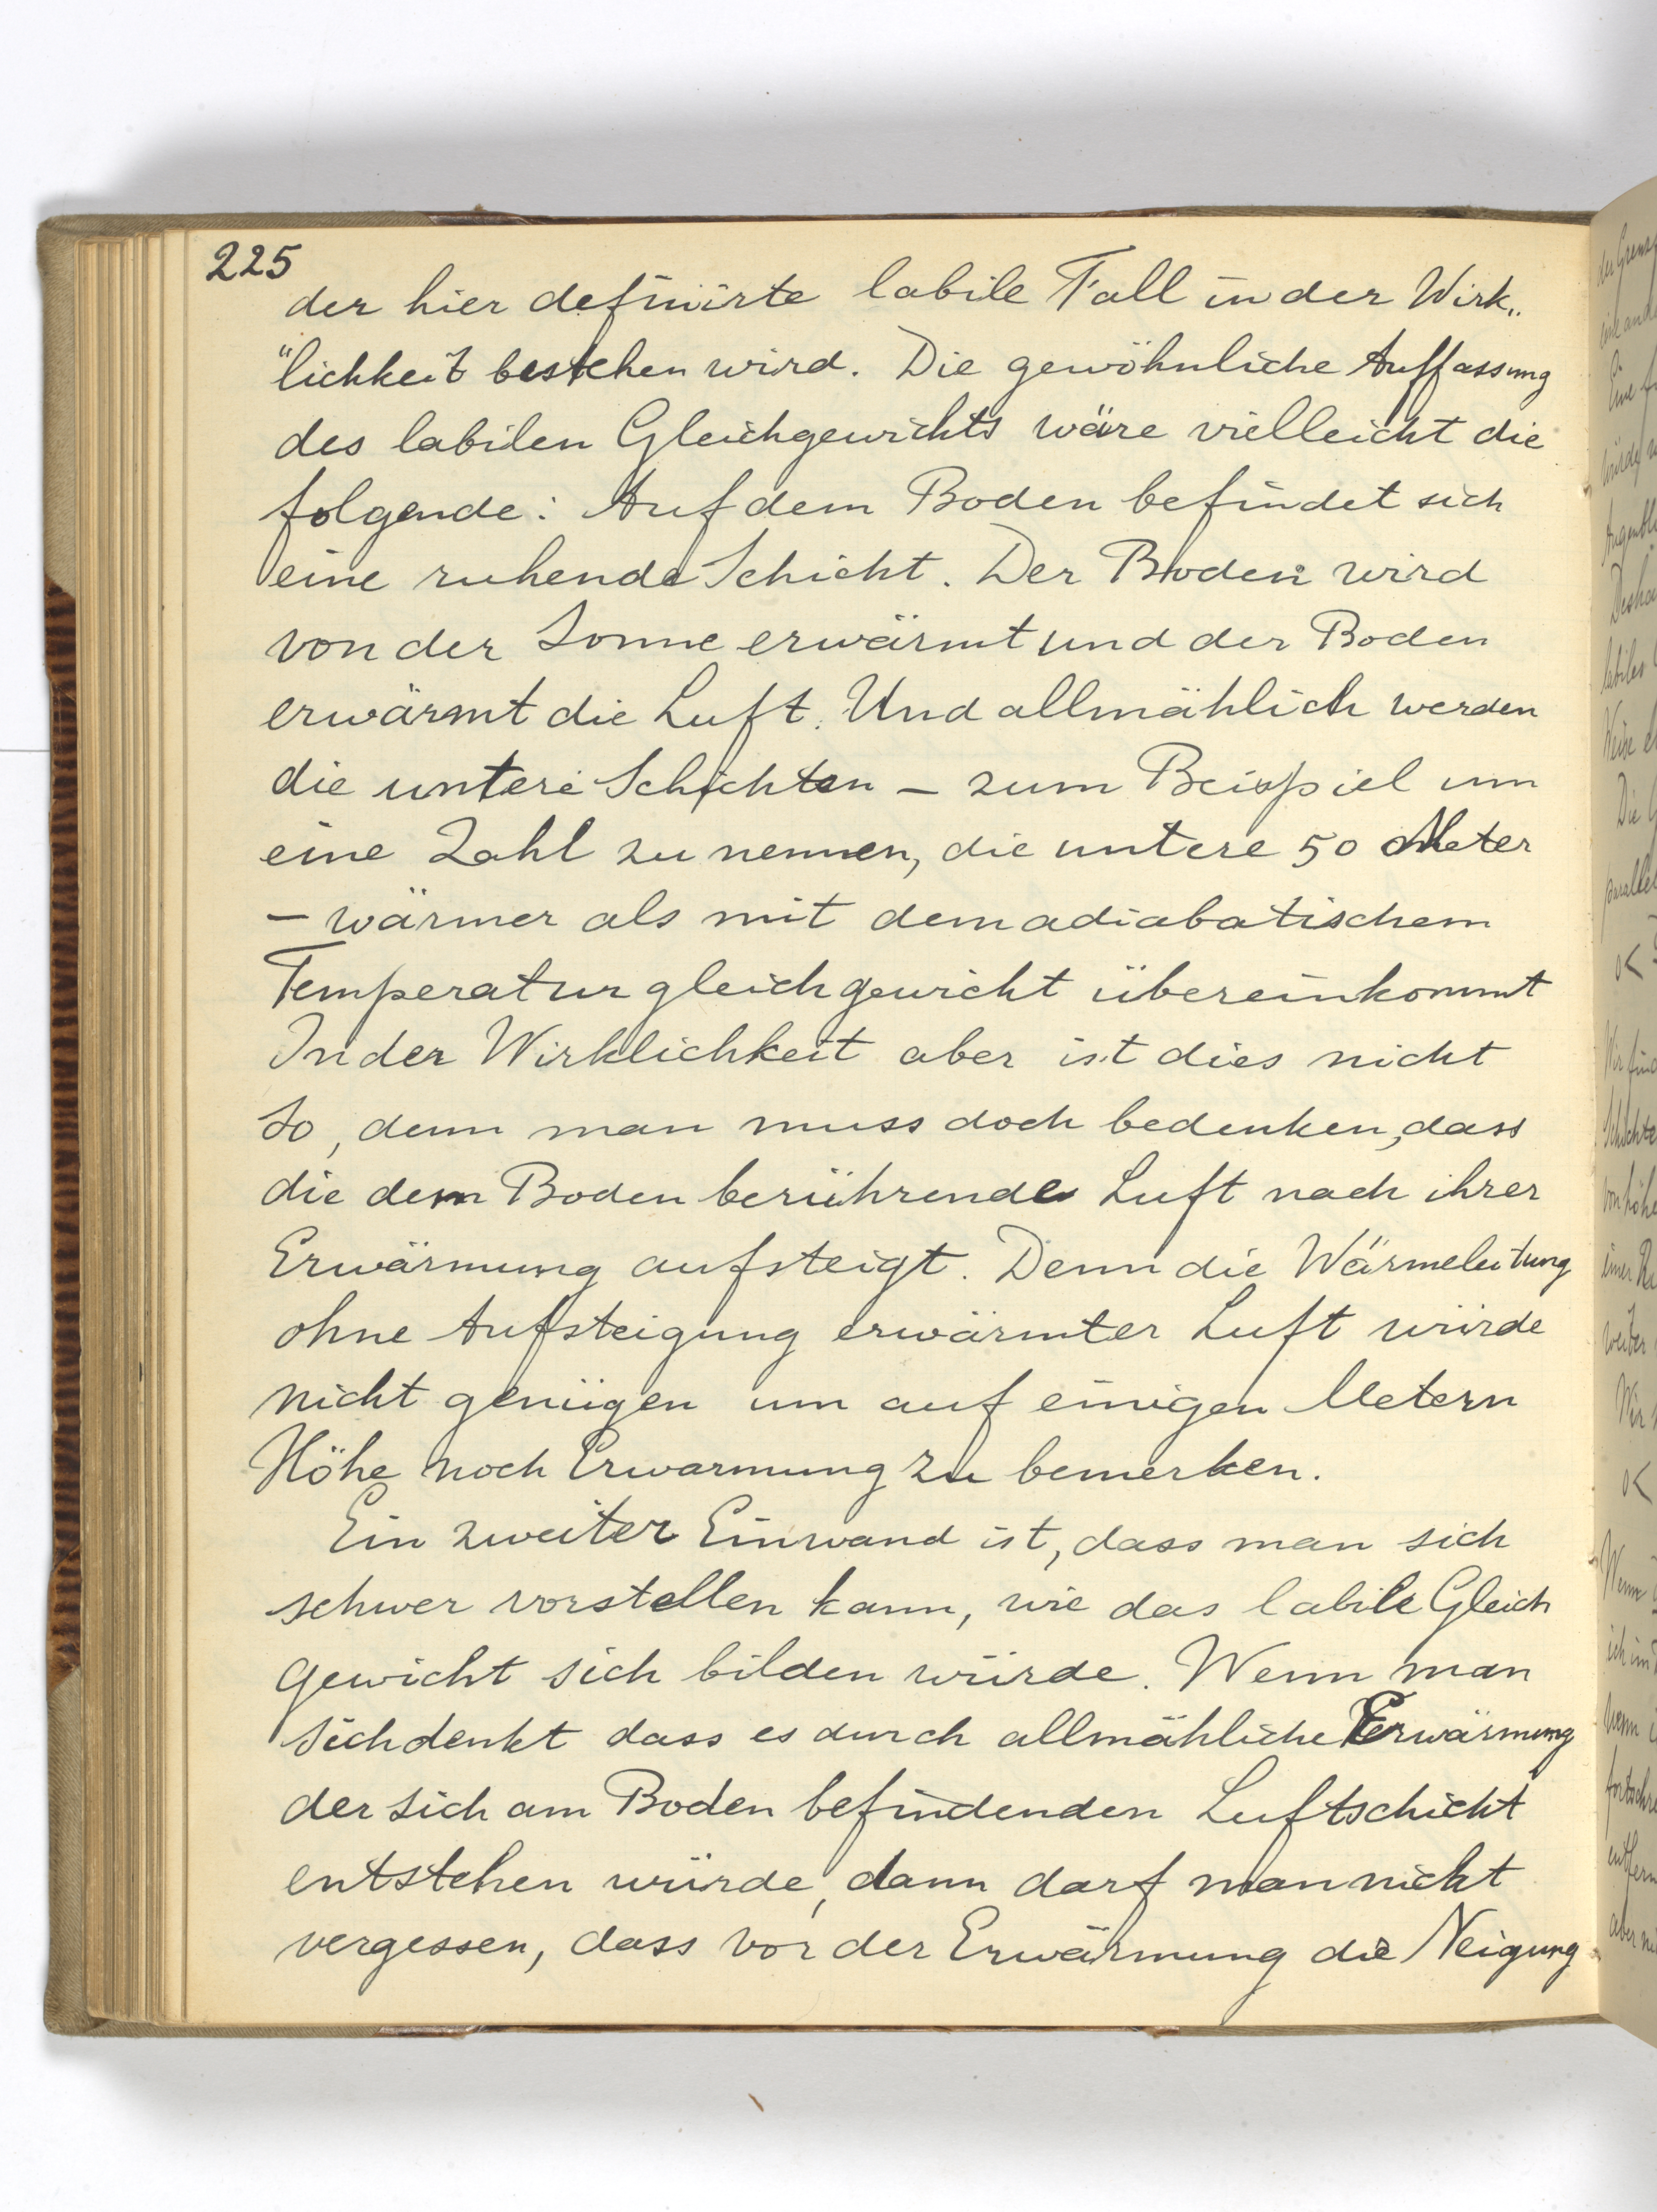 225
der hier definirte labile Fall in der Wirk„
"lichkeit bestehen wird. Die gewöhnliche Auffassung
des labilen Gleichgewichts wäre vielleicht die
folgende: Auf dem Boden befindet sich
eine ruhende Schicht. Der Boden wird
von der Sonne erwärmt und der Boden
erwärmt die Luft. Und allmählich werden
die untere Schichten – zum Beispiel um
eine Zahl zu nennen, die untere 50 Meter
– wärmer als mit dem adiabatischem
Temperaturgleichgewicht übereinkommt
In der Wirklichkeit aber ist dies nicht
so, denn man muss doch bedenken, dass
die dem Boden berührende Luft nach ihrer
Erwärmung aufsteigt. Denn die Wärmeleitung
ohne Aufsteigung erwärmter Luft würde
nicht genügen um auf einigen Metern
Höhe noch Erwarmung zu bemerken.
Ein zweiter Einwand ist, dass man sich
schwer vorstellen kann, wie das labile Gleich
gewicht sich bilden würde. Wenn man
sich denkt dass es durch allmähliche Erwärmung
der sich am Boden befindenden Luftschicht
entstehen würde, dann darf man nicht
vergessen, dass vor der Erwärmung die Neigung